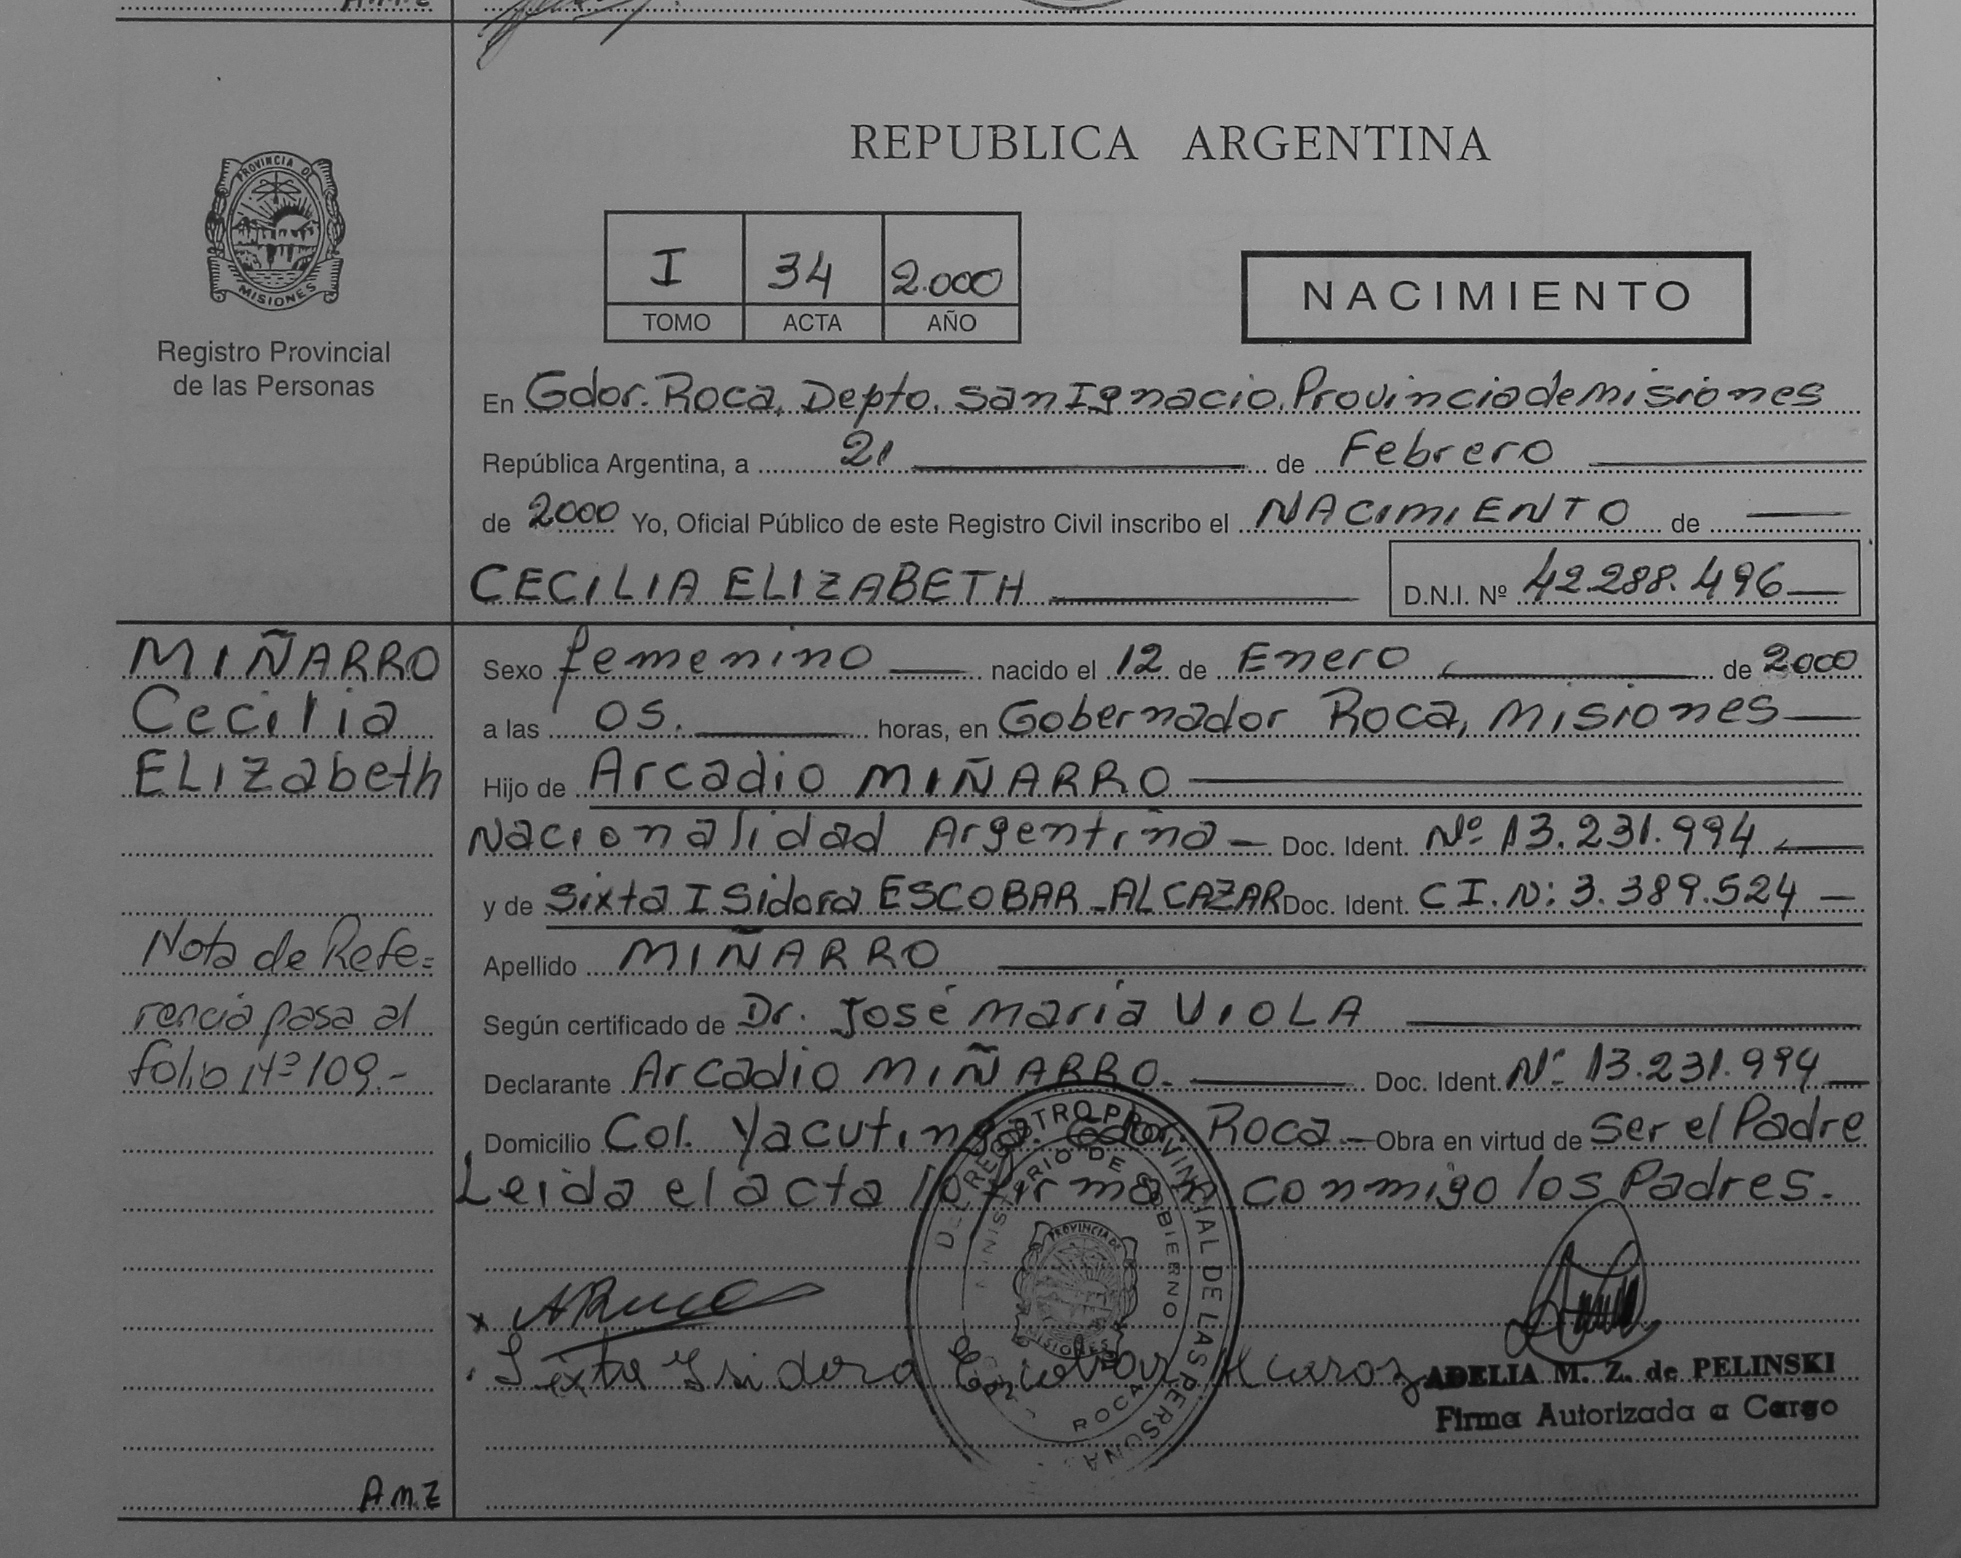 A.M.Z
PROVINCIA DE
MISIONES
Registro Provincial
de las Personas
REPUBLICA ARGENTINA
I 34 2.000
TOMO ACTA AÑO
NACIMIENTO
En Gdor. Roca, Depto. San Ignacio, Provincia de Misiones
República Argentina, a 21 de Febrero
de 2000 Yo, Oficial Público de este Registro Civil inscribo el NACIMIENTO de
CECILIA ELIZABETH D.N.I. Nº 42.288.496
MIÑARRO
Cecilia
ELIZabeth
Sexo femenino nacido el 12 de Enero de 2000
a las 05. horas, en Gobernador Roca, Misiones
Hijo de Arcadio MIÑARRO
Nacionalidad Argentina Doc. Ident. Nº 13.231.994
y de Sixta Isidora ESCOBAR ALCAZAR Doc. Ident. C I. N: 3.389.524
Apellido MIÑARRO
Según certificado de Dr. José María VIOLA
Declarante Arcadio MIÑARRO. Doc. Ident. Nº 13.231.994
Domicilio Col. Yacutinga. Gdor. Roca Obra en virtud de Ser el Padre
Leida el acta la firman conmigo los Padres.
Nota de Refe=
rencia pasa al
folio Nº 109.-
REGISTRO PROVINCIAL DE LAS PERSONAS
MINISTERIO DE GOBIERNO
PROVINCIA DE
MISIONES
ROCA
x
Sixta Isidora Escobar
ADELIA M. Z. de PELINSKI
Firma Autorizada a Cargo
A.M.Z